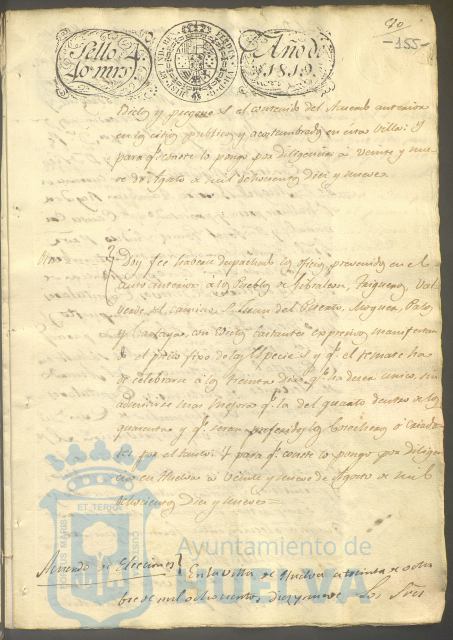 70
-155-
Sello 4.º
40 mrs
Año de
1819.
el contenido del Acuerdo anterior
en los sitios publicos y acostumbrados en esta Villa: Y
para q.e conste lo pongo por diligencia à veinte y nue-
ve de Agosto de mil ochocientos diez y nueve
Doy fee haverse despachado los oficios prevenidos en el
auto anterior à los Pueblos de Gibraleon, Trigueros, Val-
verde del camino, S. Juan del Puerto, Moguer, Palos
y Cartaya, con
el precio fixo de las Especies y q.e el remate ha
de celebrarse à los treinta dias q.e ha de ser unico, sin
admitirse mas mejora q.e la del quarto dentro de los
quarenta y q.e seran preferidos los Cosecheros ò Criado-
res por el tanto: Y para q.e conste lo pongo por diligen-
cia en Huelva à veinte y nueve de Agosto de mil
ochocientos diez y nueve=
Acuerdo de Elecciones
En la Villa de Huelva à treinta de octu-
bre de mil ochocientos diez y nueve los Sres
Ayuntamiento de
HUELVA
PORTUS MARIS
ET TERRÆ
CUSTODIA